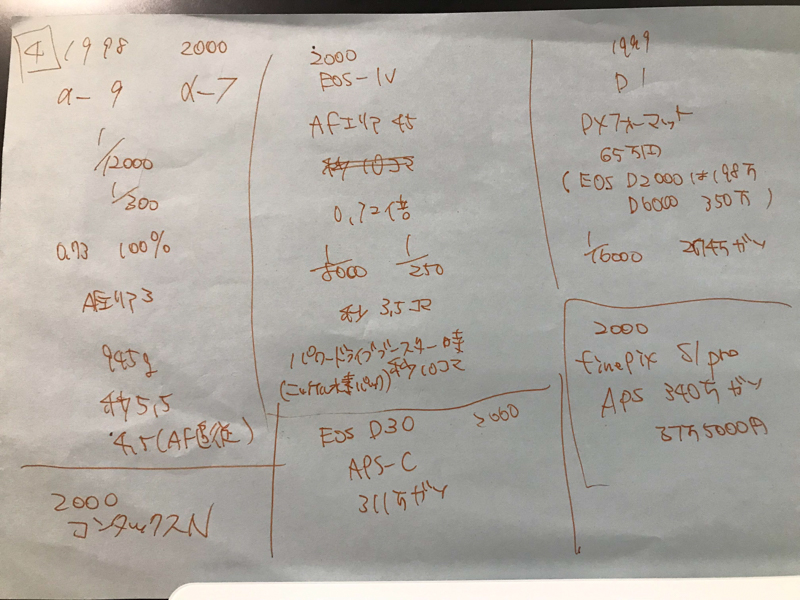 4 1998 2000
α-9 α-7
1/12000
1/300
0.73 100%
AFエリア3
945g
秒5,5
4,5(AF追従)
2000
コンタックスN
2000
EOS-1V
AFエリア 45
秒10コマ
0,72倍
1/8000 1/250
秒 3,5コマ
パワードライブブースター時
秒10コマ
EOS D30 2000
APS-C
311万ガソ
1999
D1
DXフォーマット
65万円
(EOS D2000は198万
D6000 350万)
1/16000 274万ガソ
2000
finepix S1pro
APS 340万ガソ
37万5000円